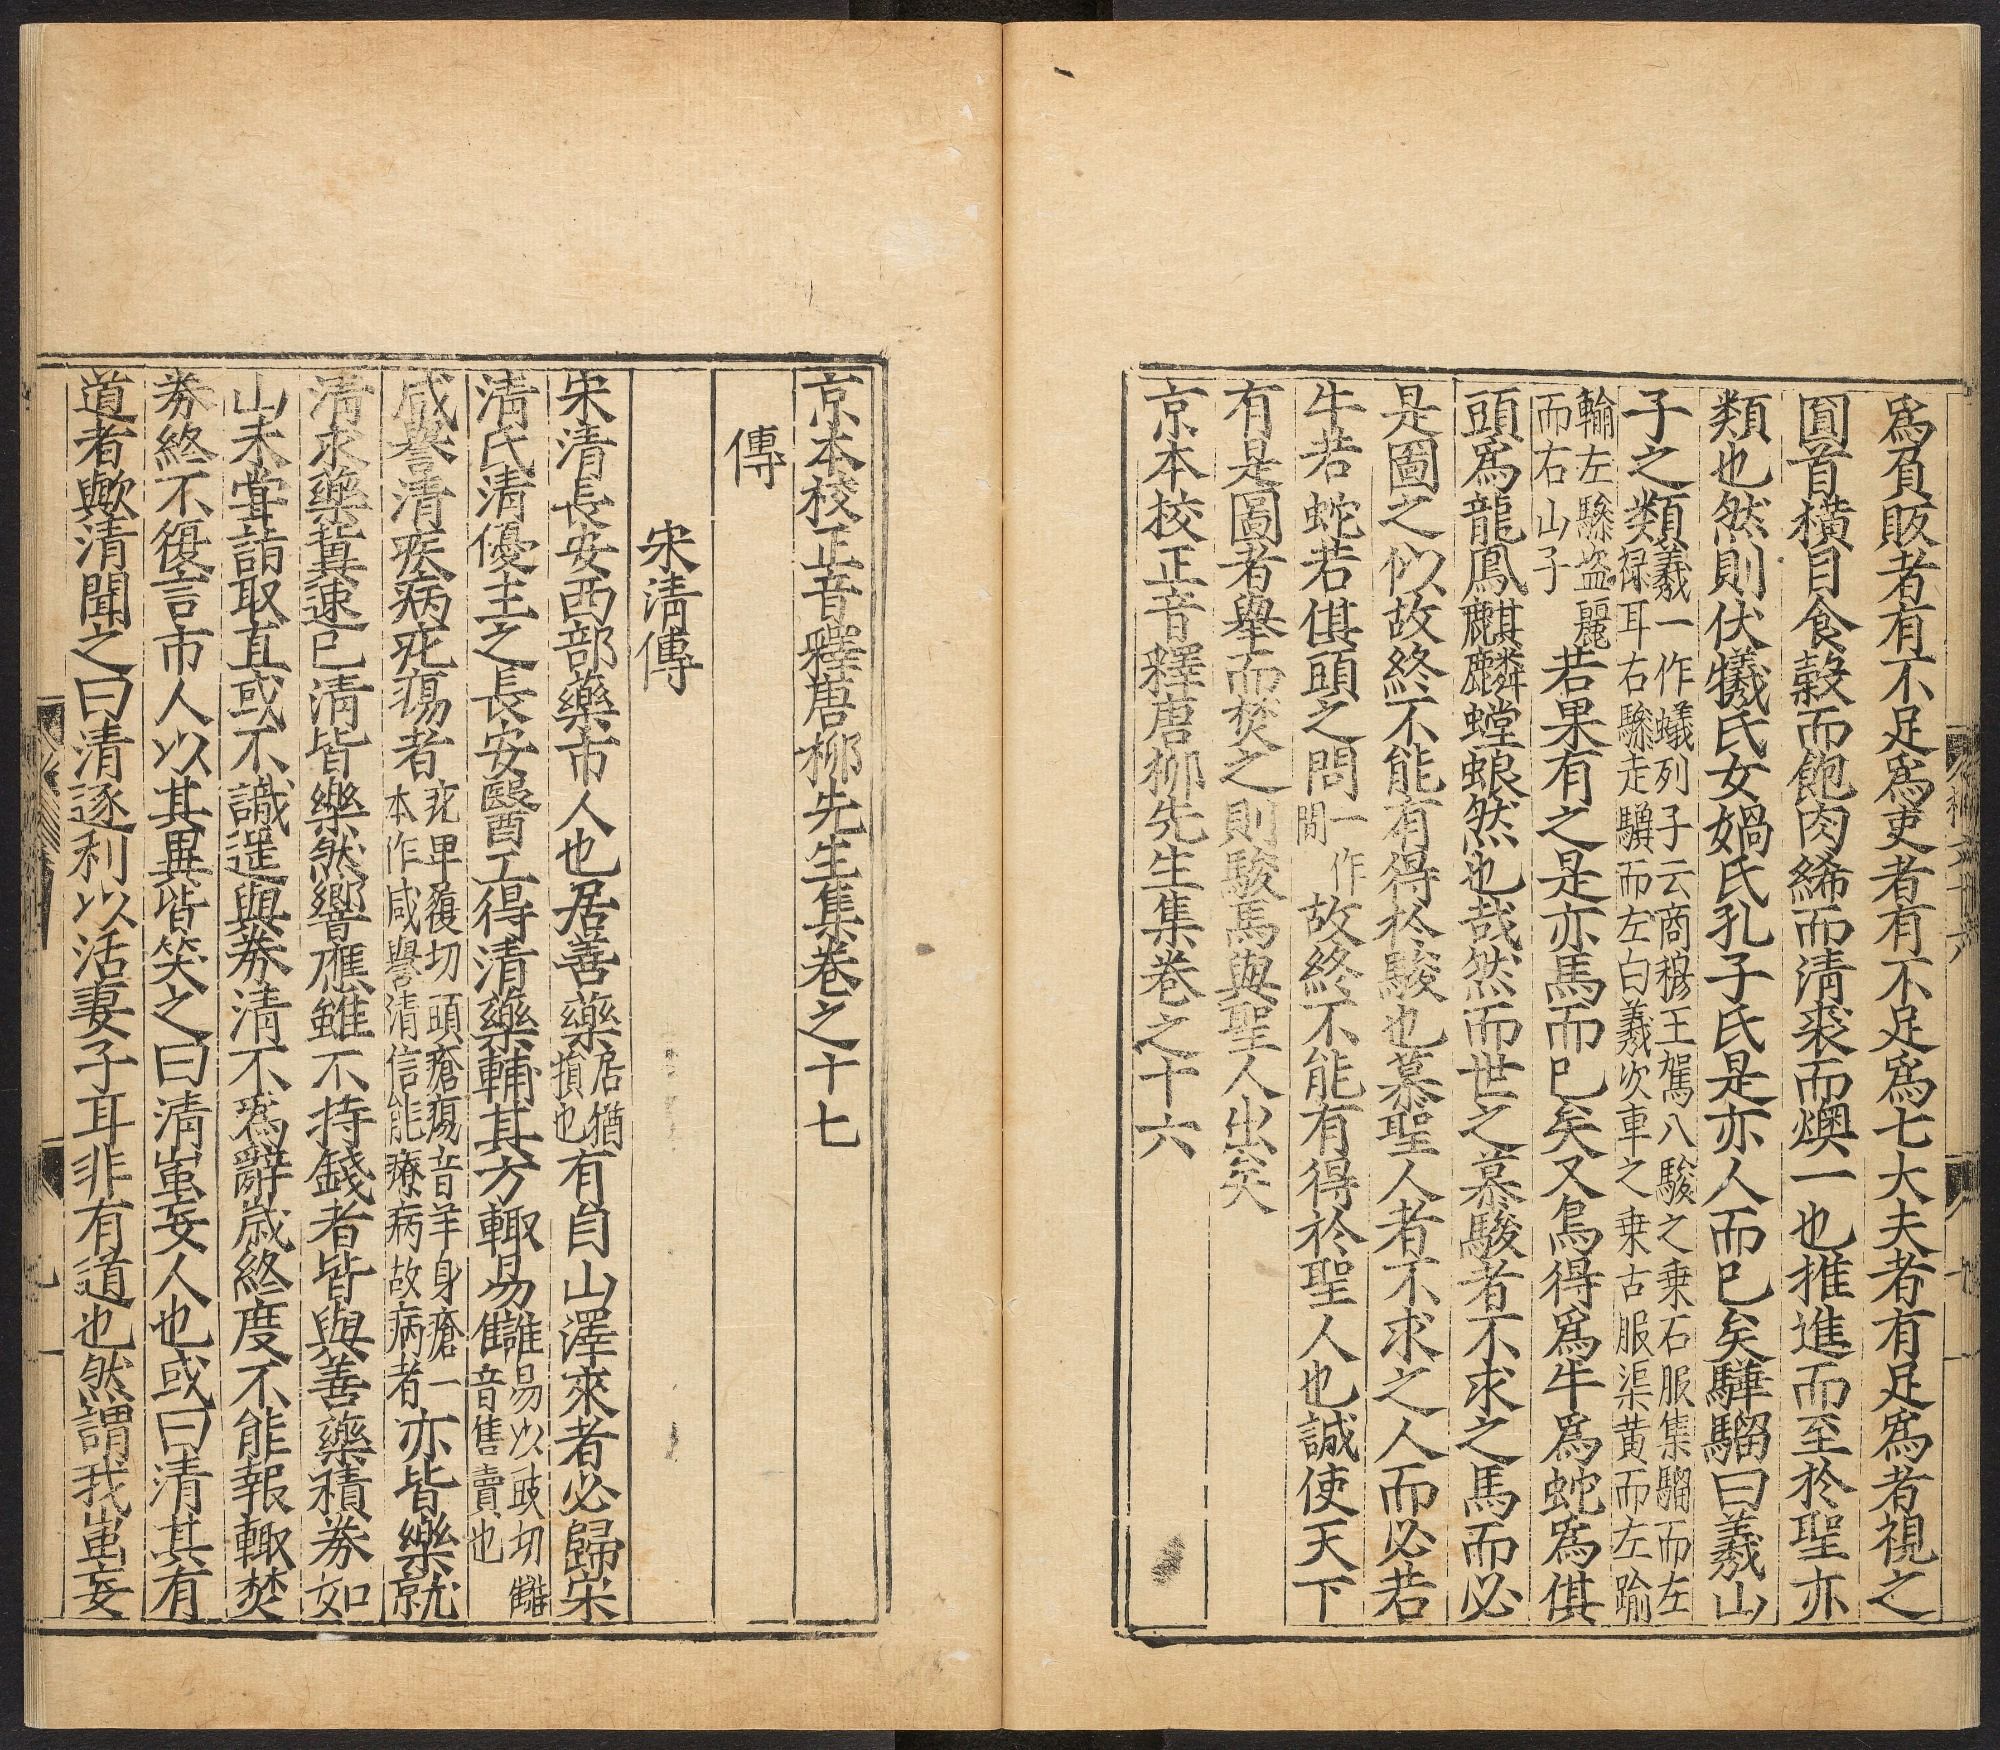 爲負販者有不足爲吏者有不足爲七大夫者有足爲者視之
圓首橫目食穀而飽肉絺而清裘而燠一也推進而至於聖亦
類也然則伏犧氏女媧氏孔子氏是亦人而已矣驊騮曰羲山
子之類
羲一作蟻列子云商穆王駕八駿之乗右服集騮而左
禄耳右驂走驥而左白羲次車之乗右服渠黄而左踰
輪左驂盗驪
而右山子
若果有之是亦馬而已矣又烏得爲牛爲蛇爲倛
頭爲龍鳳麒麟螳蜋然也哉然而世之慕駿者不求之馬而必
是圖之似故終不能有得於駿也慕聖人者不求之人而必若
牛若蛇若倛頭之問
一作
間
故終不能有得於聖人也誠使天下
有是圖者舉而焚之則駿馬與聖人出矣
京本校正音釋唐柳先生集卷之十六
京本校正音釋唐柳先生集卷之十七
傳
宋清傳
宋清長安西部藥市人也居善藥
居猶
損也
有自山澤來者必歸宋
清氏清優主之長安醫工得清藥輔其方輙易讎
易以豉切讎
音售賣也
咸譽清疾病疕瘍者
疕卑履切頭瘡瘍音羊身瘡一
本作咸譽清信能療病故病者
亦皆樂就
清求藥冀速已清皆樂然響應雖不持錢者皆與善藥積劵如
山未甞詣取直或不識遥與劵清不爲辭歲終度不能報輙焚
劵終不復言市人以其異皆笑之曰清蚩妄人也或曰清其有
道者歟清聞之曰清逐利以活妻子耳非有道也然謂我蚩妄